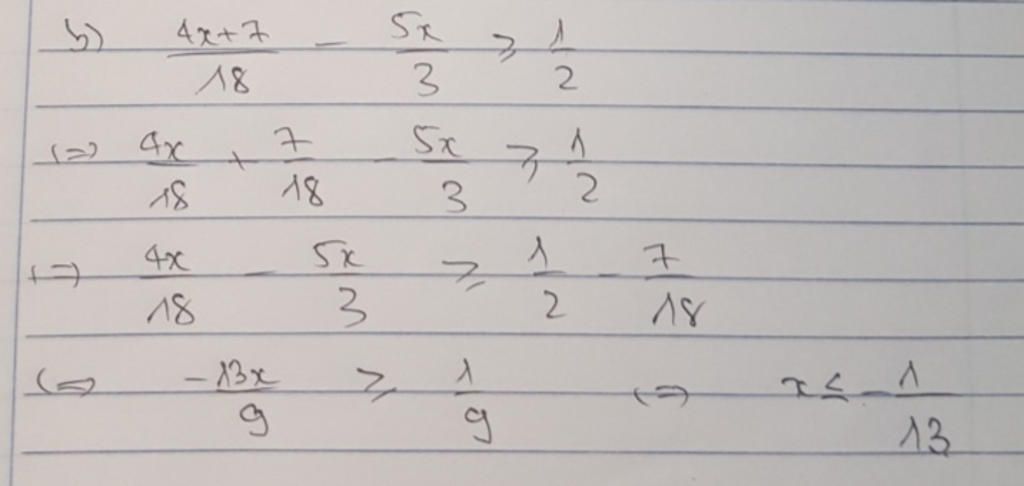 b) (4x+7)/18 - 5x/3 ⩾ 1/2
(=) 4x/18 + 7/18 - 5x/3 ⩾ 1/2
(=) 4x/18 - 5x/3 ⩾ 1/2 - 7/18
(=) -13x/9 ⩾ 1/9 (=) x ≤ -1/13